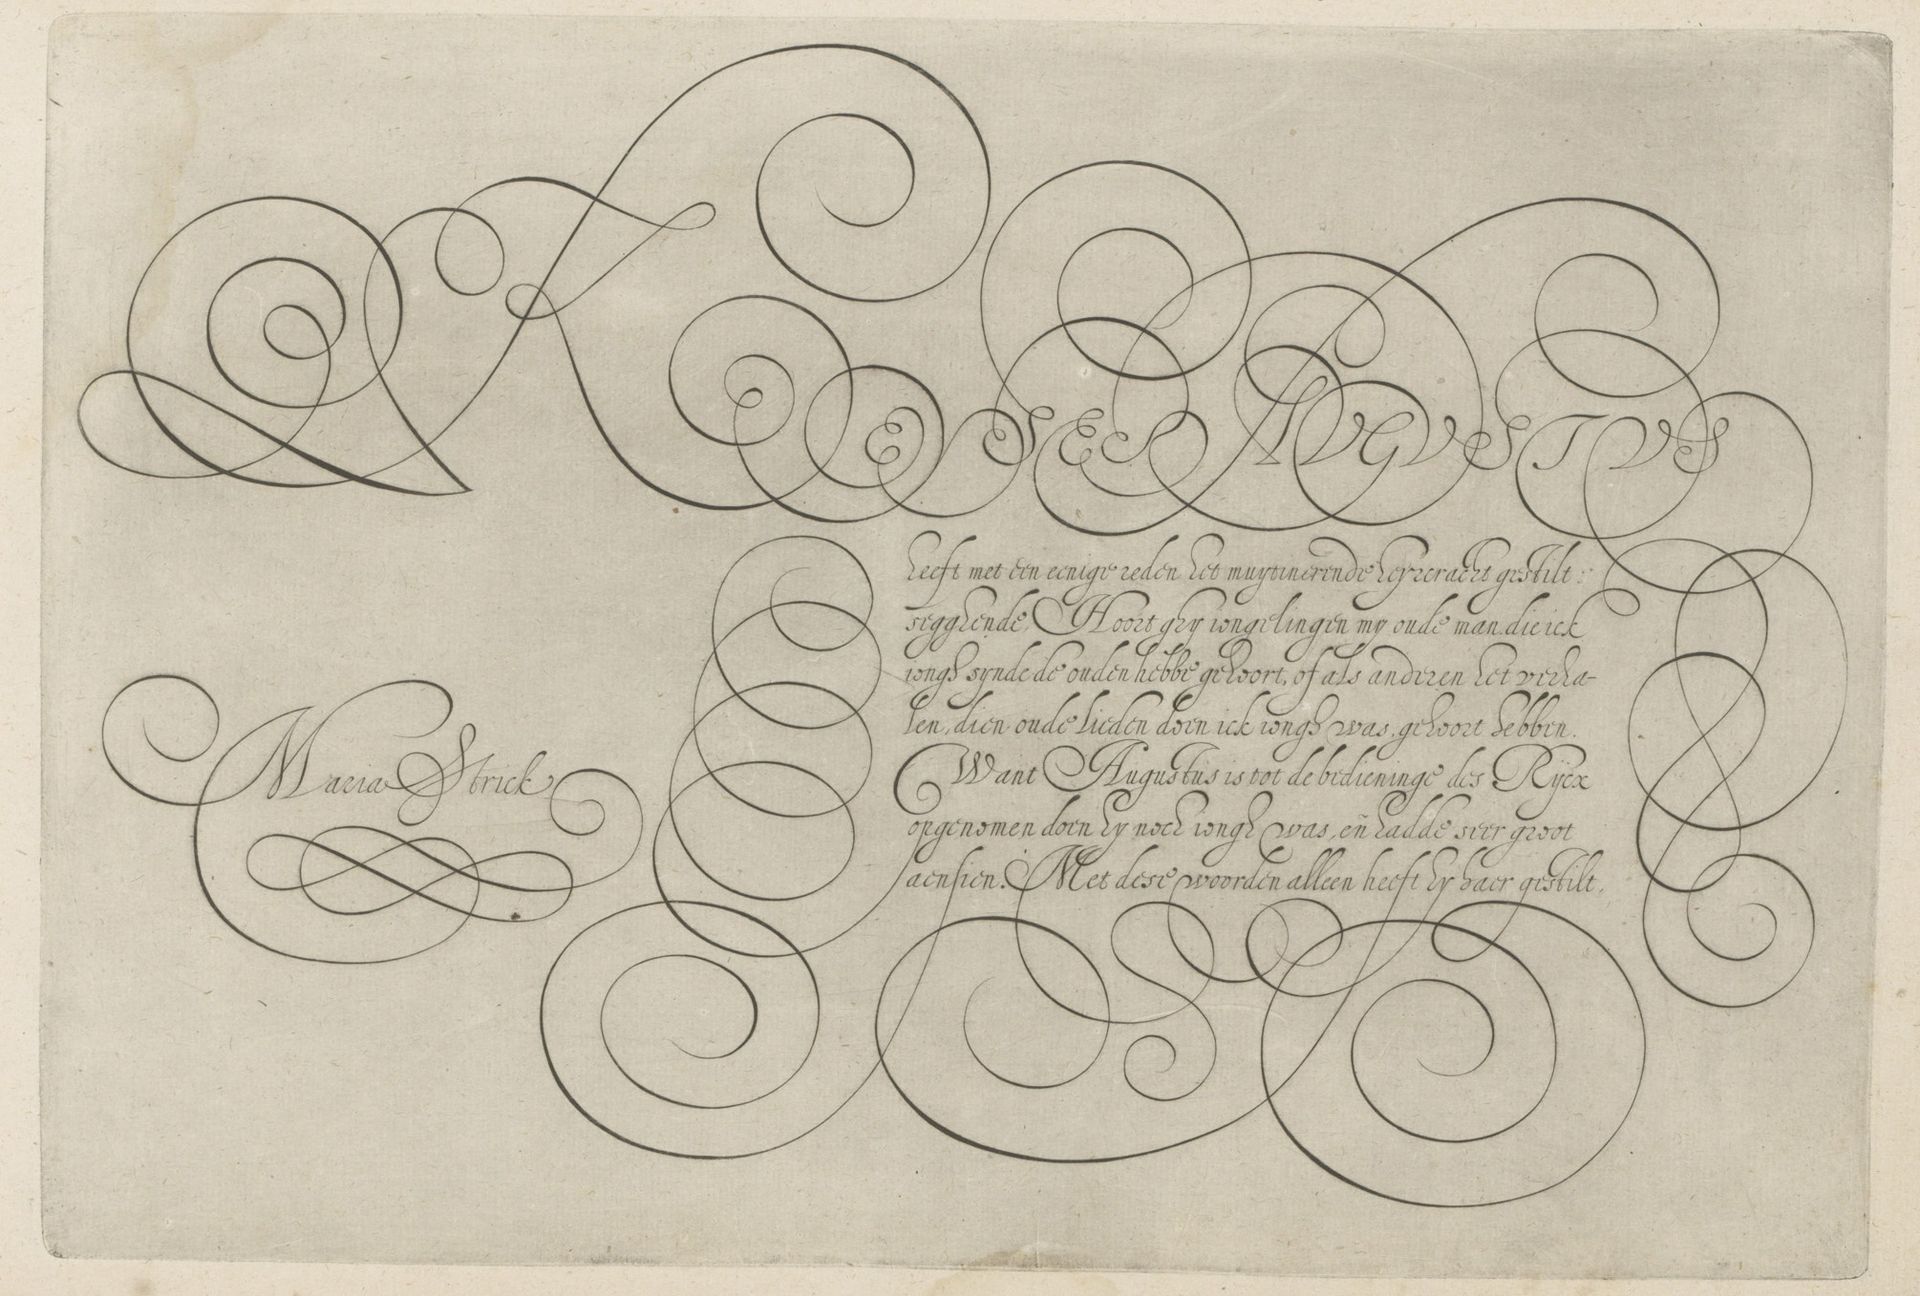 KEYSER AUGUSTUS
heeft met een eenige reden het muytinerende heyrcracht gestilt:
segghende, Hoort ghy iongelingen my oude man, die ick
iongh synde de ouden hebbe gehoort, of als anderen het verha-
len, dien oude lieden doen ick iongh was, gehoort hebben.
Want Augustus is tot de bedieninge des Rijcx
opgenomen doen hy noch iongh was, eñ hadde seer groot
aensien. Met dese woorden alleen heeft hy haer gestilt.
Maria Strick